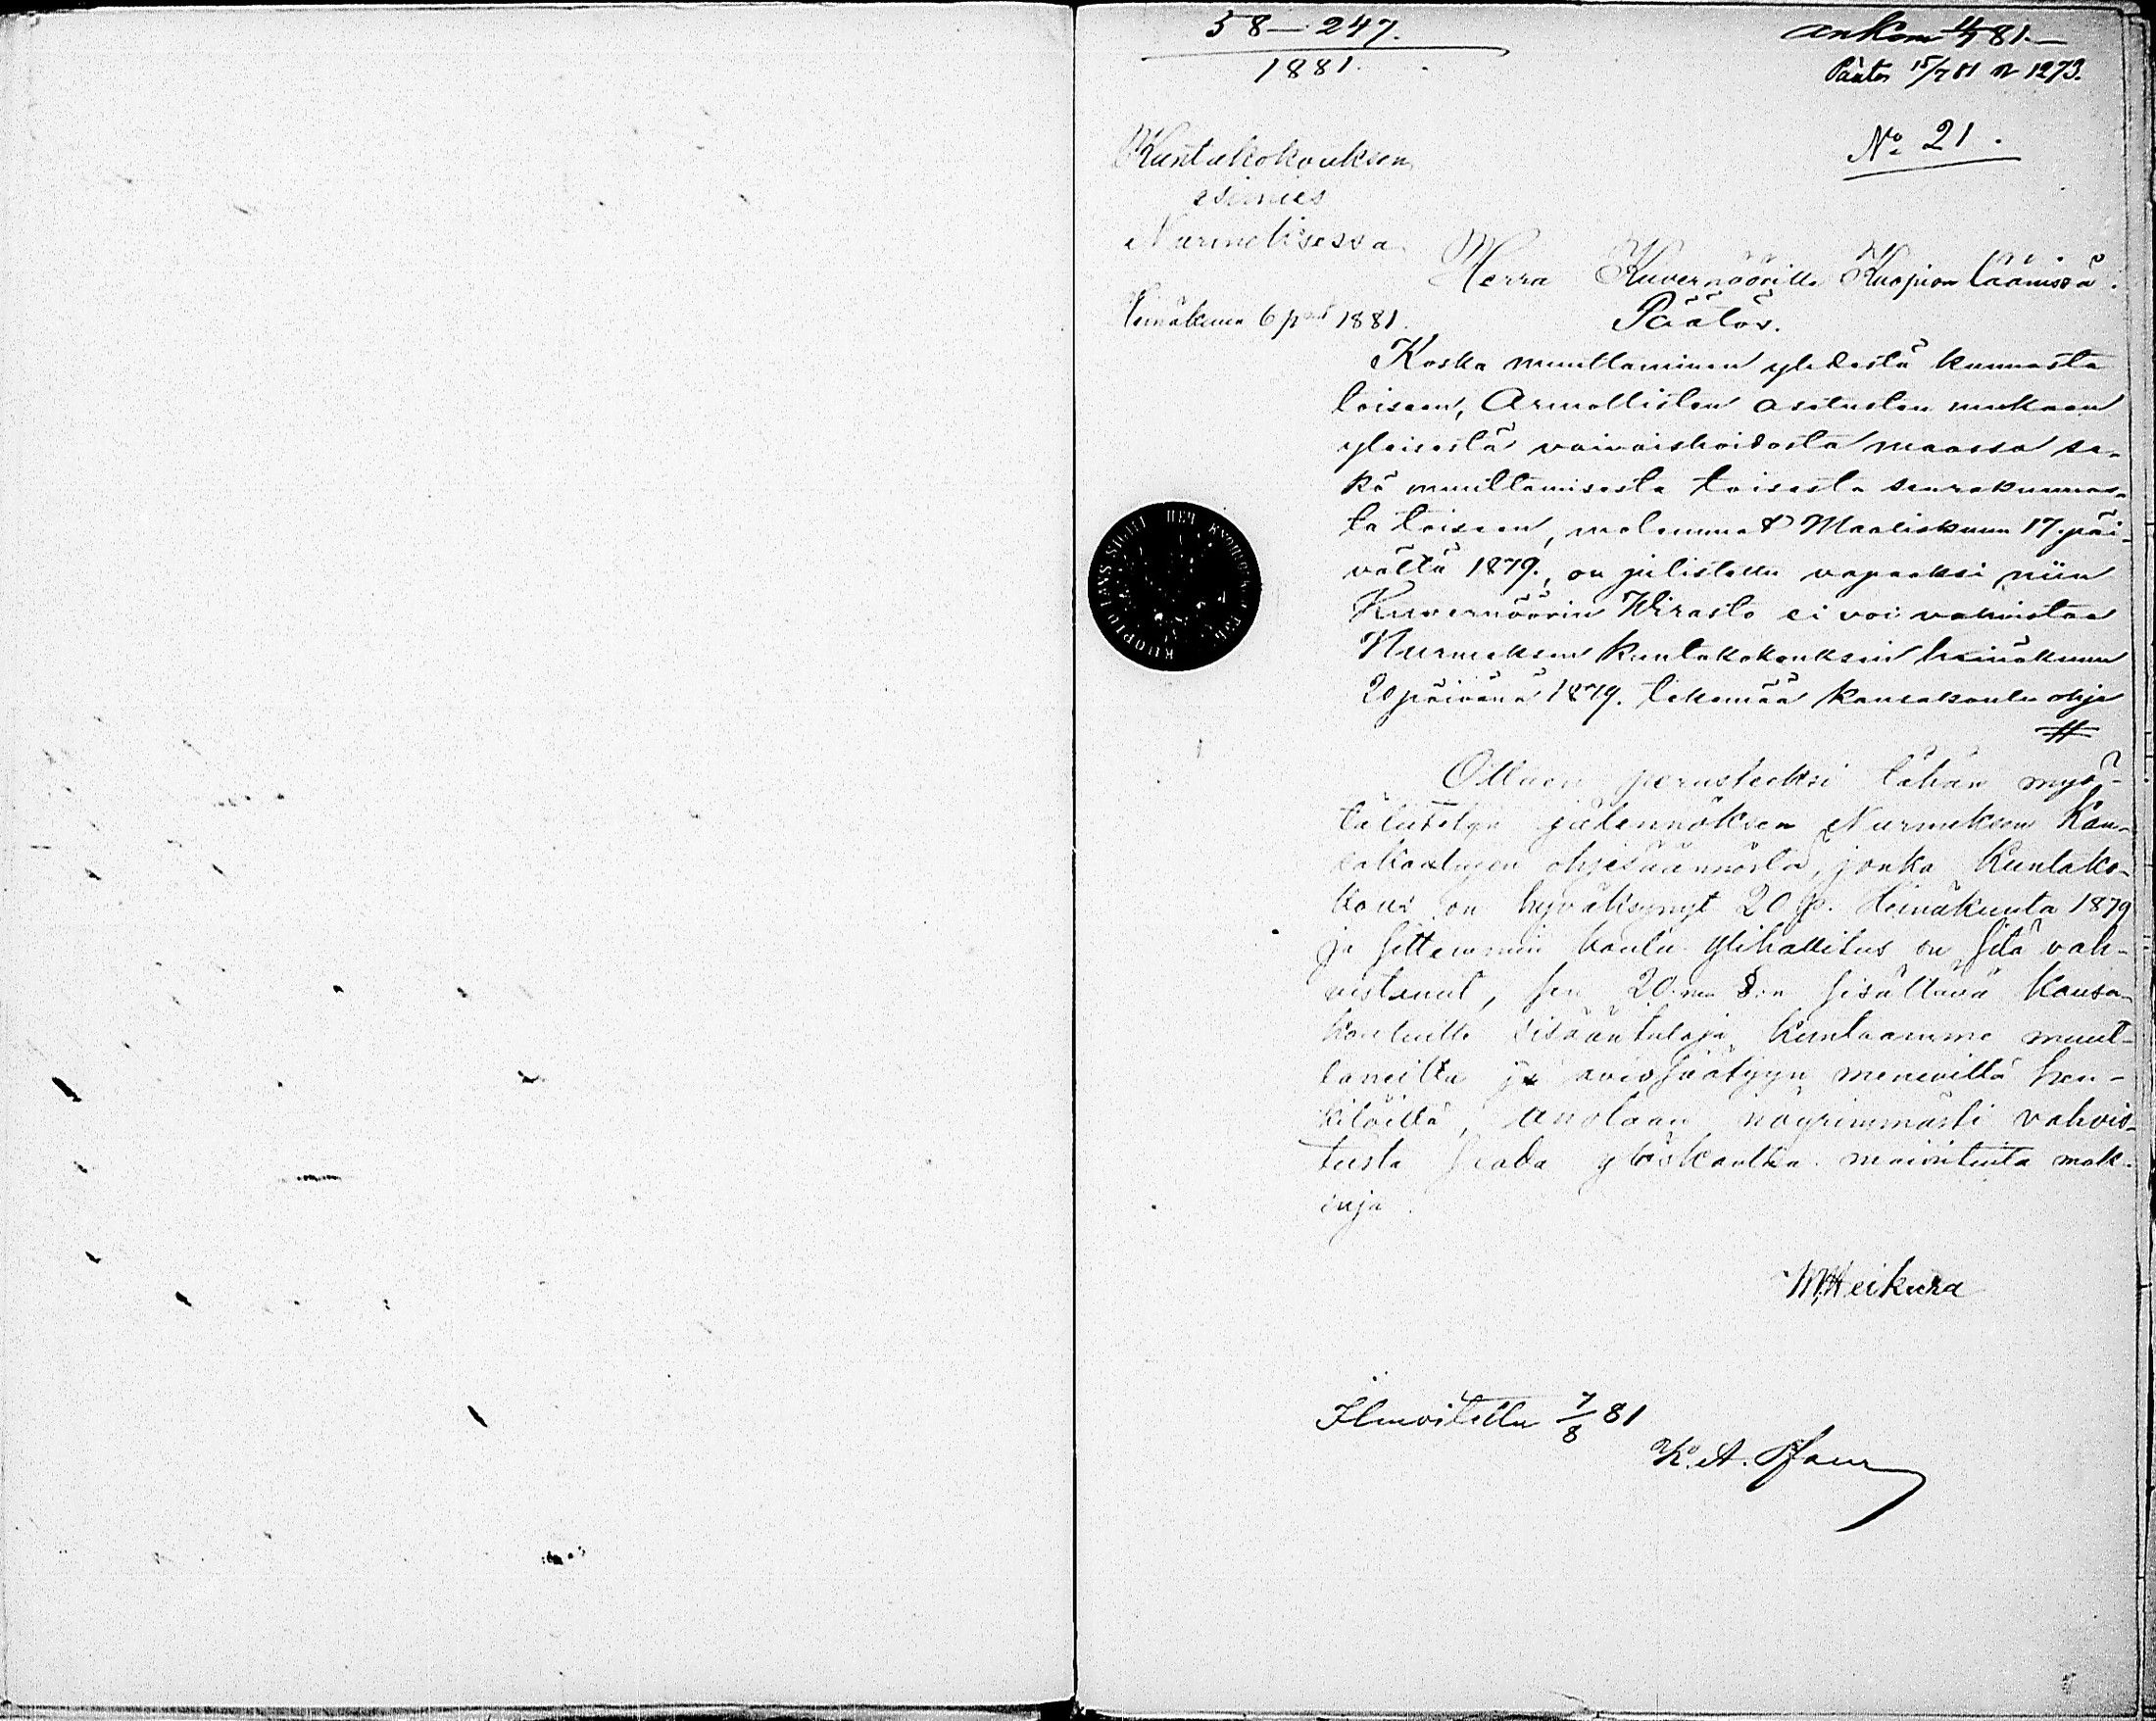 58-247.
1881.
ankom 11/7 81.-
Päätös 15/7 81 n 1273.
No 21.
Kuntakokouksen
esimies
Nurmeksessa.
Herra Kuvernöörille Kuopion läänissä.
Heinäkuun 6 pnä 1881.
Päätös.
Koska muuttaminen yhdestä kunnasta
toiseen, Armollisten asetusten mukaan
yleisestä vaivaishoidosta maassa se-
kä muuttamisesta toisesta seurakunnas-
ta toiseen, molemmat Maaliskuun 17. päi-
vältä 1879., on julistettu vapaaksi niin
Kuvernöörin Wirasto ei voi vahvistaa
Nurmeksen kuntakokouksen heinäkuun
20 päivänä 1879. tekemää kansakoulu ohje
#
Ottaen perusteeksi tähän myö-
täliitetyn jäljennöksen Nurmeksen Kan-
sakoulujen ohjesäännöstä, jonka Kuntako-
kous on hyväksynyt 20 p. Heinäkuuta 1879
ja sittemmin koulu ylihallitus on sitä vah-
vistanut, sen 20:nen §:n sisältävä kansa-
kouluille sisääntuloja kuntaamme muut-
taneilta ja aviosäätyyn meneviltä hen-
kilöiltä, anotaan nöyrimmästi vahvis-
tusta saada yöskantaa mainituita mak-
suja.
M, Heikura
Ilmoitettu 7/8 81
K. A.
KUOPIO LÄNS SIGILL